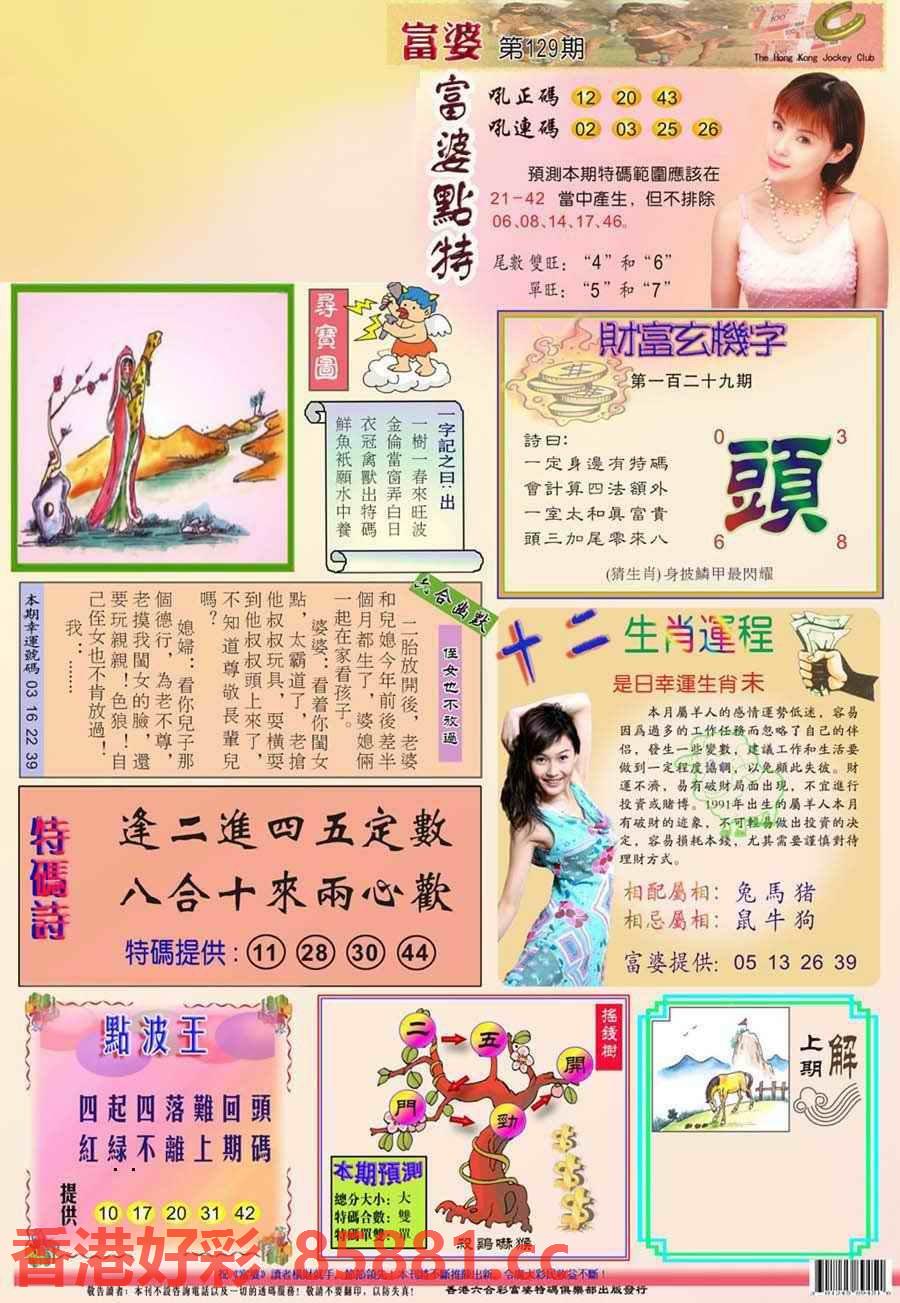 富婆 第129期
The Hong Kong Jockey Club
富婆點特
吼正碼 12 20 43
吼連碼 02 03 25 26
預測本期特碼範圍應該在
21-42 當中產生，但不排除
06.08.14.17.46。
尾數雙旺：“4”和“6”
單旺：“5”和“7”
尋寶圖
一字記之曰：出
一樹一春來旺波
金倫當窗弄白日
衣冠禽獸出特碼
鮮魚衹願水中養
財富玄機字
第一百二十九期
詩曰：
一定身邊有特碼
會計算四法額外
一室太和真富貴
頭三加尾零來八
0 3
頭
6 8
(猜生肖)身披鱗甲最閃耀
六合幽默
侄女也不放過
二胎放開後，老婆
和兒媳今年前後差半
個月都生了，婆媳倆
一起在家看孩子。
婆婆：看着你閨女
點，太霸道了，老搶
他叔叔玩具，耍橫耍
到他叔叔頭上來了，
不知道尊敬長輩兒
嗎？
媳婦：看你兒子那
個德行，為老不尊，
老摸我閨女的臉，還
要玩親親！色狼！自
己侄女也不肯放過！
我：……
本期幸運號碼 03 16 22 39
十二生肖運程
是日幸運生肖未
本月屬羊人的感情運勢低迷，容易
因爲過多的工作任務而忽略了自己的伴
侣，發生一些變數，建議工作和生活要
做到一定程度協調，以免顧此失彼。財
運不濟，易有破財局面出現，不宜進行
投資或賭博。1991年出生的屬羊人本月
有破財的迹象，不可輕易做出投資的决
定，容易損耗本錢，尤其需要謹慎對待
理財方式。
相配屬相：兔馬猪
相忌屬相：鼠牛狗
富婆提供：05 13 26 39
特碼詩
逢二進四五定數
八合十來兩心歡
特碼提供：11 28 30 44
點波王
四起四落難回頭
紅緑不離上期碼
提供 10 17 20 31 42
搖錢樹
二 五
開
門 勁
本期預測
總分大小：大
特碼合數：雙
特碼單雙：單
殺鷄嚇猴
上期解
香港好彩 85881.cc
敬告讀者：本刊不設咨詢電話以及一切的透碼服務！敬請不要翻印，以防失真！
香港六合彩富婆特碼俱樂部出版發行